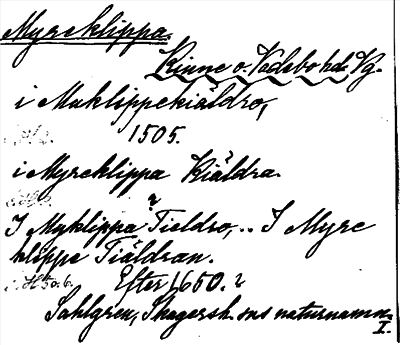 Myreklippa.
Kinne o. Vadsbo hd. Vg.
i Muklippekiäldro,
1505.
i Myreklippa Kiäldra.
I Myklippa Tieldro,.. I Myre
klippe Tiäldran.
Efter 1650.
Sahlgren, Skagersh. sns naturnamn.
I.